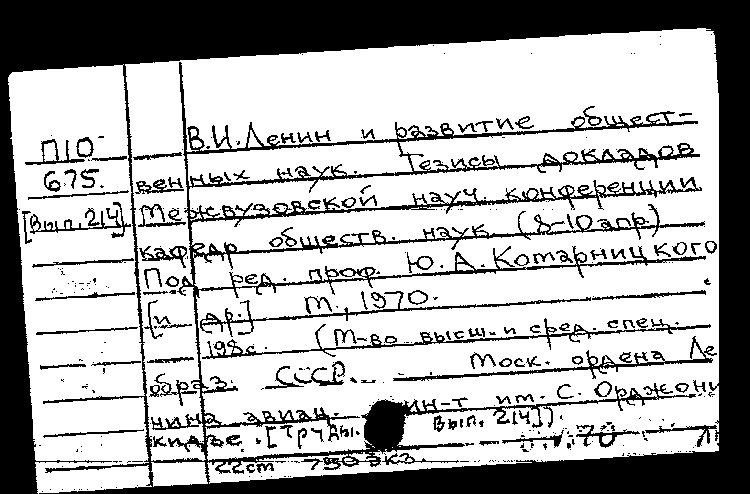 П10-
675.
[Вып. 214]
В.И.Ленин и развитие общест-
венных наук. Тезисы докладов
Межвузовской науч. конференции
кафедр обществ. наук (8-10 апр.)
Под ред. проф. Ю.А. Котарницкого
[и др.] М., 1970.
198с. (М-во высш. и сред. спец.
образ. СССР. Моск. ордена Ле
нина авиац. ин-т им. С. Орджони
кидзе. [Труды. Вып. 214]).
22см 750экз.